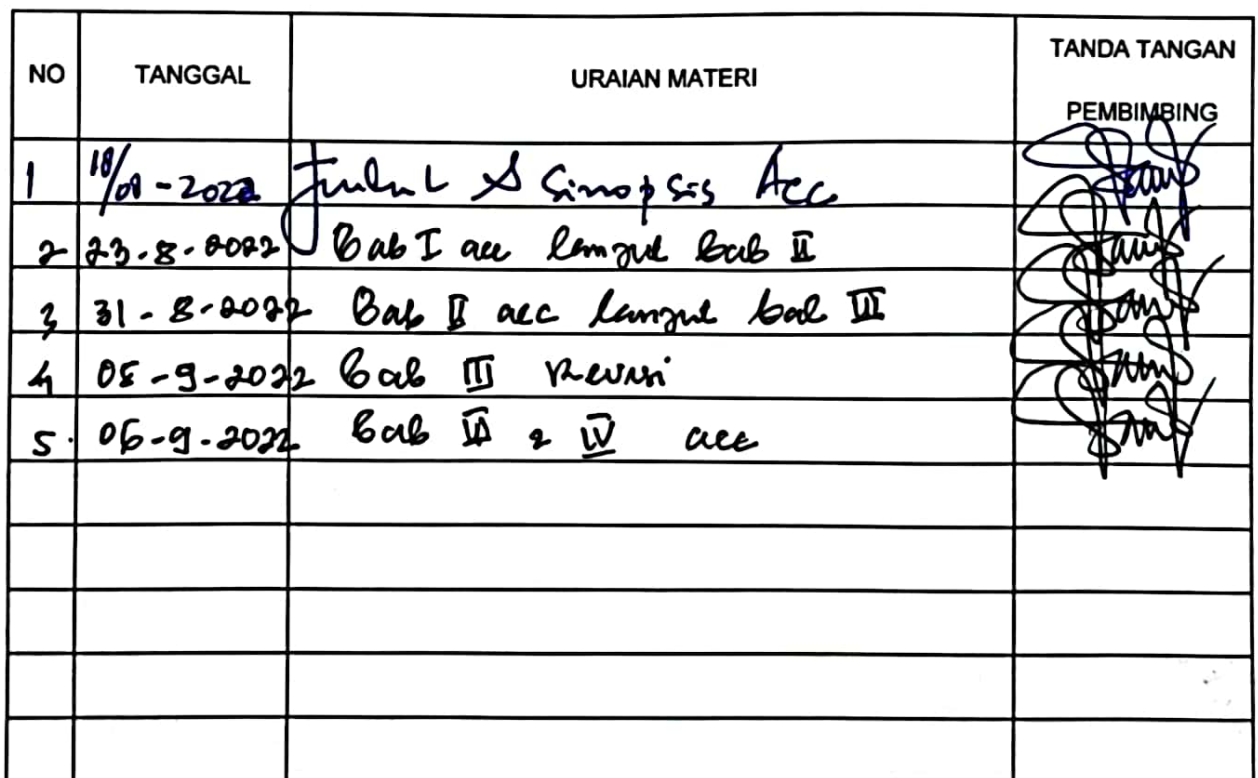 NO TANGGAL URAIAN MATERI TANDA TANGAN PEMBIMBING
1 18/08-2022 Judul & Sinopsis Acc
2 23-8-2022 Bab I acc lanjut bab II
3 31-8-2022 Bab II acc lanjut bab III
4 05-9-2022 Bab III Revisi
5. 06-9-2022 Bab III & IV acc